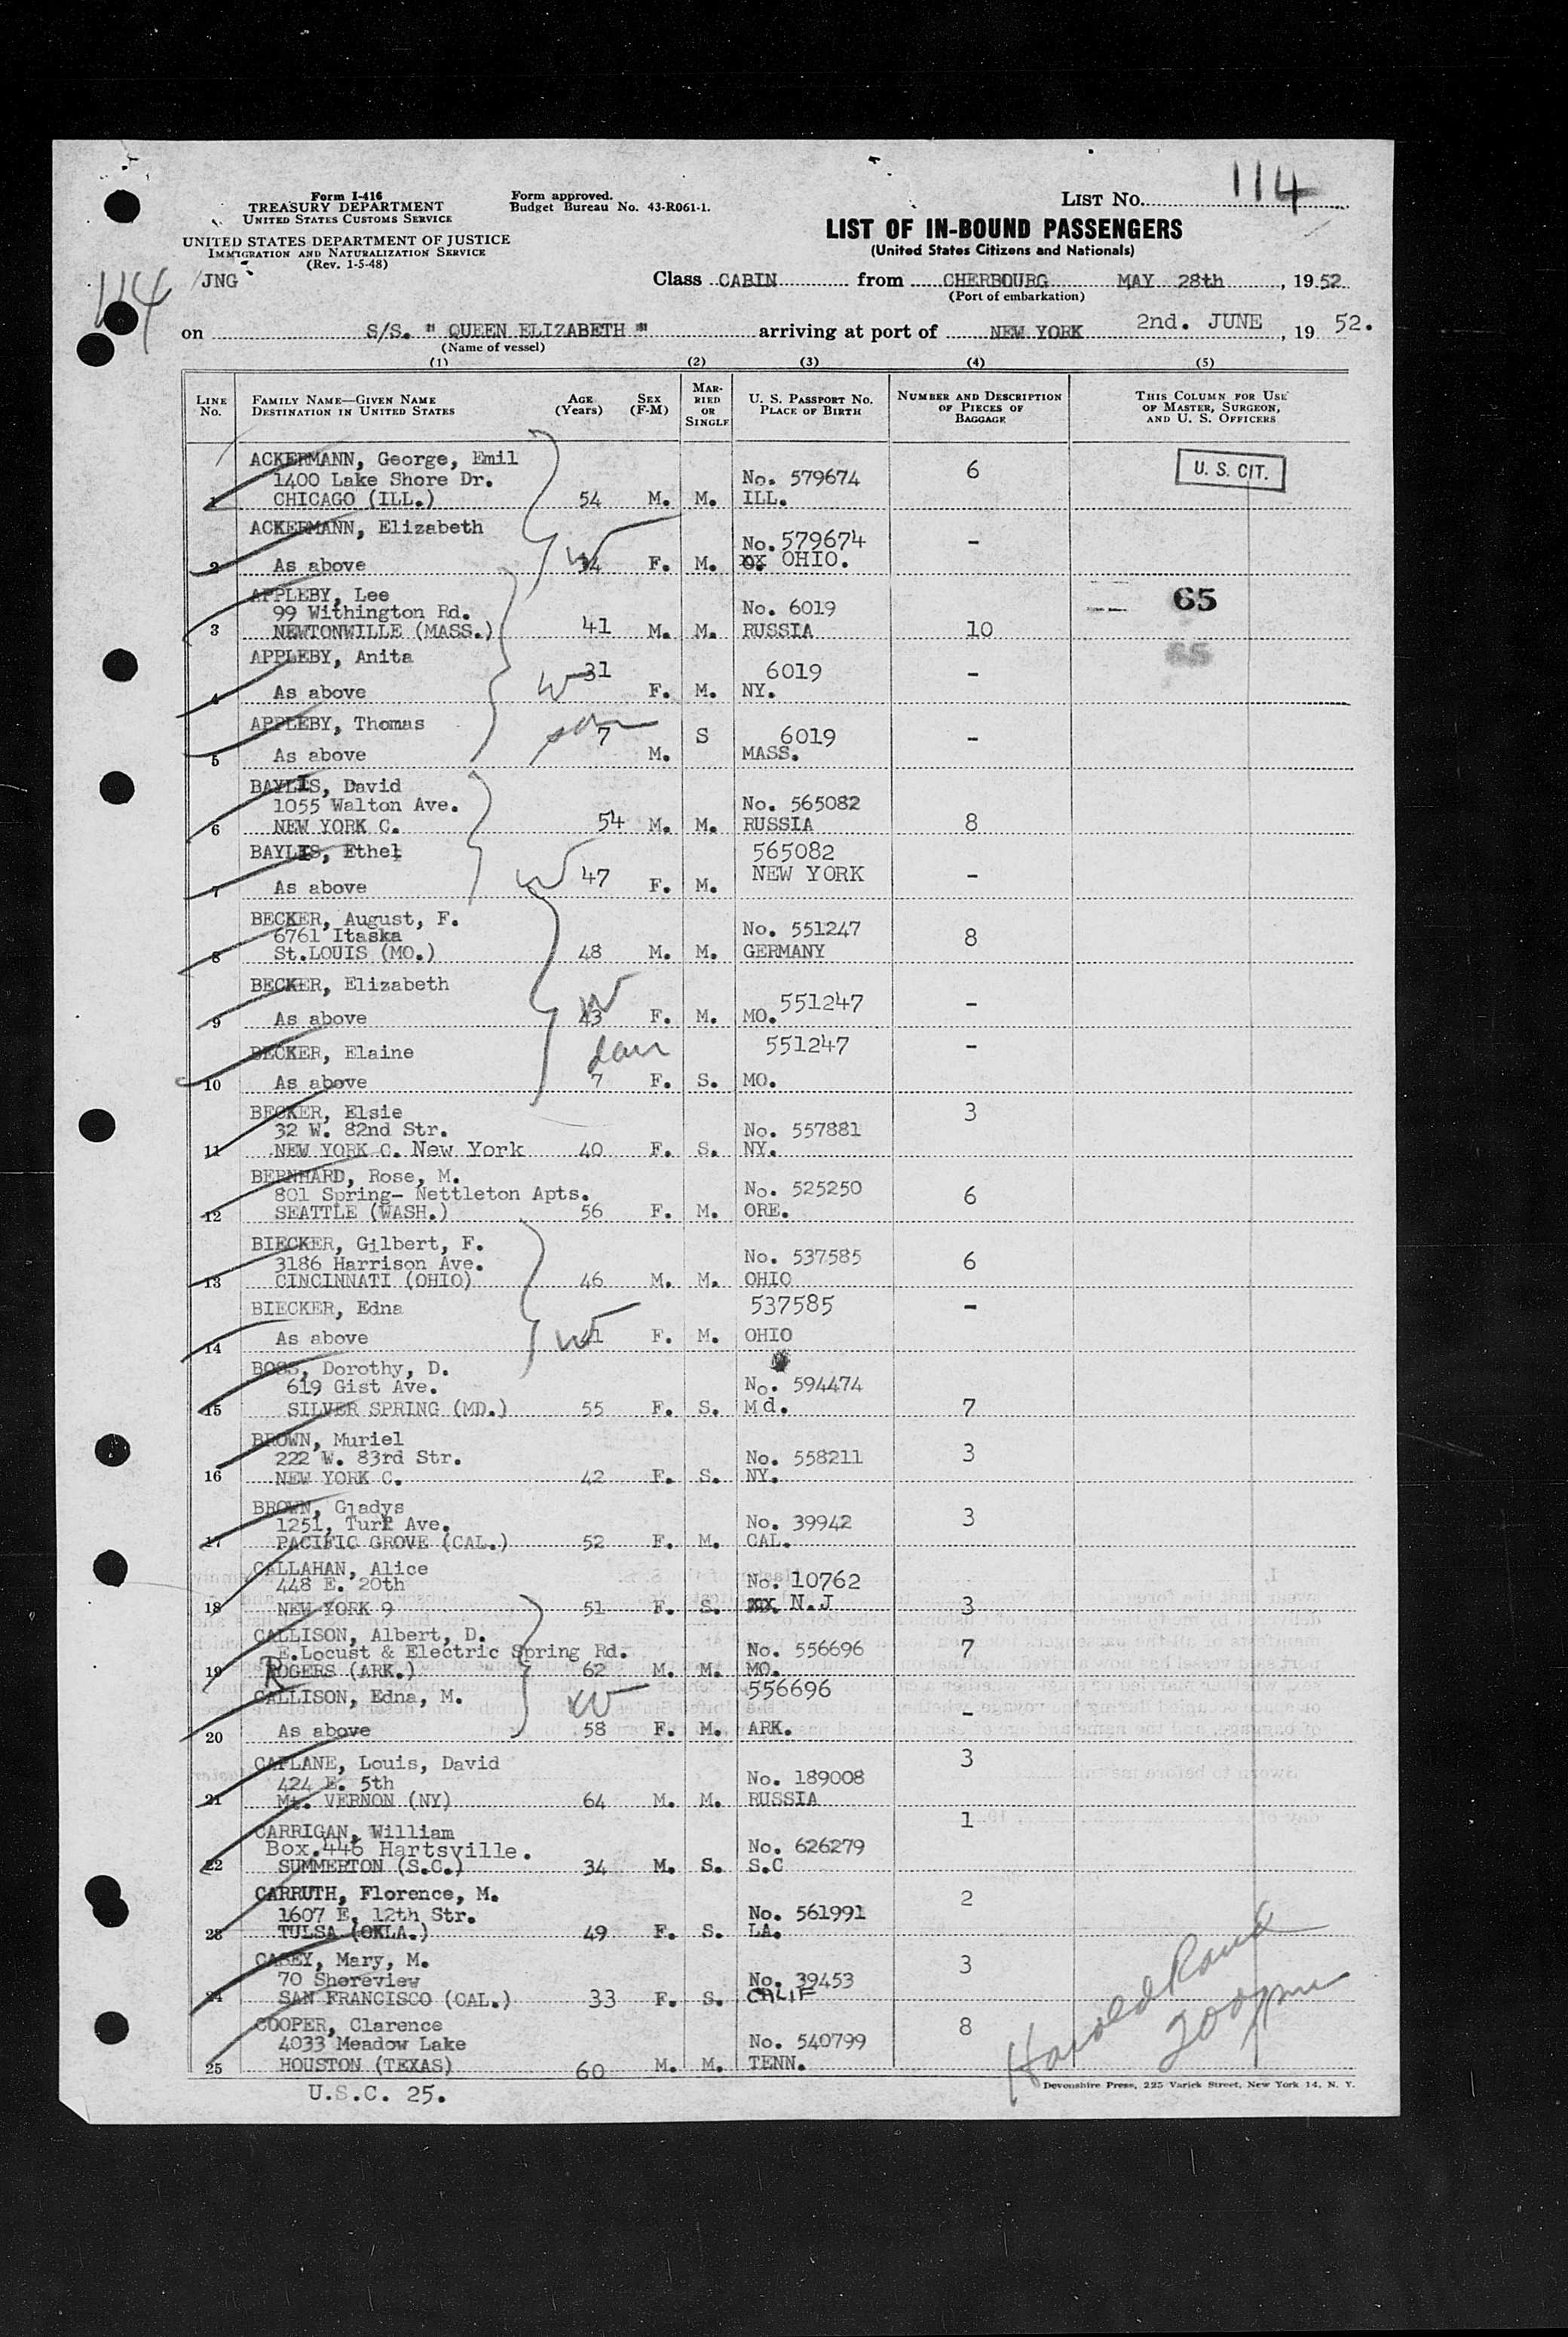 Form I-416
TREASURY DEPARTMENT
UNITED STATES CUSTOMS SERVICE
Form approved.
Budget Bureau No. 43-R061-1.
LIST NO. 114
UNITED STATES DEPARTMENT OF JUSTICE
IMMIGRATION AND NATURALIZATION SERVICE
(Rev. 1-5-48)
LIST OF IN-BOUND PASSENGERS
(United States Citizens and Nationals)
114 JNG
Class CABIN from CHERBOURG MAY 28th, 1952
(Port of embarkation)
on S/S. " QUEEN ELIZABETH " arriving at port of NEW YORK 2nd. JUNE, 19 52.
(Name of vessel)
(1) (2) (3) (4) (5)
LINE No. FAMILY NAME—GIVEN NAME DESTINATION IN UNITED STATES AGE (Years) SEX (F-M) MARRIED OR SINGLE U. S. PASSPORT NO. PLACE OF BIRTH NUMBER AND DESCRIPTION OF PIECES OF BAGGAGE THIS COLUMN FOR USE OF MASTER, SURGEON, AND U. S. OFFICERS
ACKERMANN, George, Emil
1400 Lake Shore Dr. No. 579674 6 U. S. CIT.
1 CHICAGO (ILL.) 54 M. M. ILL.
ACKERMANN, Elizabeth W No. 579674 -
2 As above 34 F. M. OHIO.
APPLEBY, Lee
99 Withington Rd. No. 6019 65
3 NEWTONWILLE (MASS.) 41 M. M. RUSSIA 10
APPLEBY, Anita W 31 6019 - 65
4 As above F. M. NY.
APPLEBY, Thomas son 7 S 6019 -
5 As above M. MASS.
BAYLIS, David
1055 Walton Ave. No. 565082
6 NEW YORK C. 54 M. M. RUSSIA 8
BAYLIS, Ethel W 565082
7 As above 47 F. M. NEW YORK -
BECKER, August, F.
6761 Itaska No. 551247 8
8 St.LOUIS (MO.) 48 M. M. GERMANY
BECKER, Elizabeth W 551247 -
9 As above 43 F. M. MO.
BECKER, Elaine dau 551247 -
10 As above 7 F. S. MO.
BECKER, Elsie 3
32 W. 82nd Str. No. 557881
11 NEW YORK C. New York 40 F. S. NY.
BERNHARD, Rose, M.
801 Spring- Nettleton Apts. No. 525250 6
12 SEATTLE (WASH.) 56 F. M. ORE.
BIECKER, Gilbert, F.
3186 Harrison Ave. No. 537585 6
13 CINCINNATI (OHIO) 46 M. M. OHIO
BIECKER, Edna 537585 -
14 As above W 41 F. M. OHIO
BOSS, Dorothy, D.
619 Gist Ave. No. 594474
15 SILVER SPRING (MD.) 55 F. S. Md. 7
BROWN, Muriel
222 W. 83rd Str. No. 558211 3
16 NEW YORK C. 42 F. S. NY.
BROWN, Gladys
1251, Turk Ave. No. 39942 3
17 PACIFIC GROVE (CAL.) 52 F. M. CAL.
CALLAHAN, Alice
448 E. 20th No. 10762
18 NEW YORK 9 51 F. S. N.J 3
CALLISON, Albert, D.
E.Locust & Electric Spring Rd. No. 556696 7
19 ROGERS (ARK.) 62 M. M. MO.
CALLISON, Edna, M. W 556696 -
20 As above 58 F. M. ARK.
CAPLANE, Louis, David 3
424 E. 5th No. 189008
21 Mt. VERNON (NY) 64 M. M. RUSSIA
CARRIGAN, William 1
Box.446 Hartsville. No. 626279
22 SUMMERTON (S.C.) 34 M. S. S.C
CARRUTH, Florence, M. 2
1607 E. 12th Str. No. 561991
23 TULSA (OKLA.) 49 F. S. LA.
CASEY, Mary, M. 3
70 Shoreview No. 39453
24 SAN FRANCISCO (CAL.) 33 F. S. CALIF
COOPER, Clarence 8
4033 Meadow Lake No. 540799
25 HOUSTON (TEXAS) 60 M. M. TENN.
Harold
200pm
Devonshire Press, 225 Varick Street, New York 14, N. Y.
U.S.C. 25.